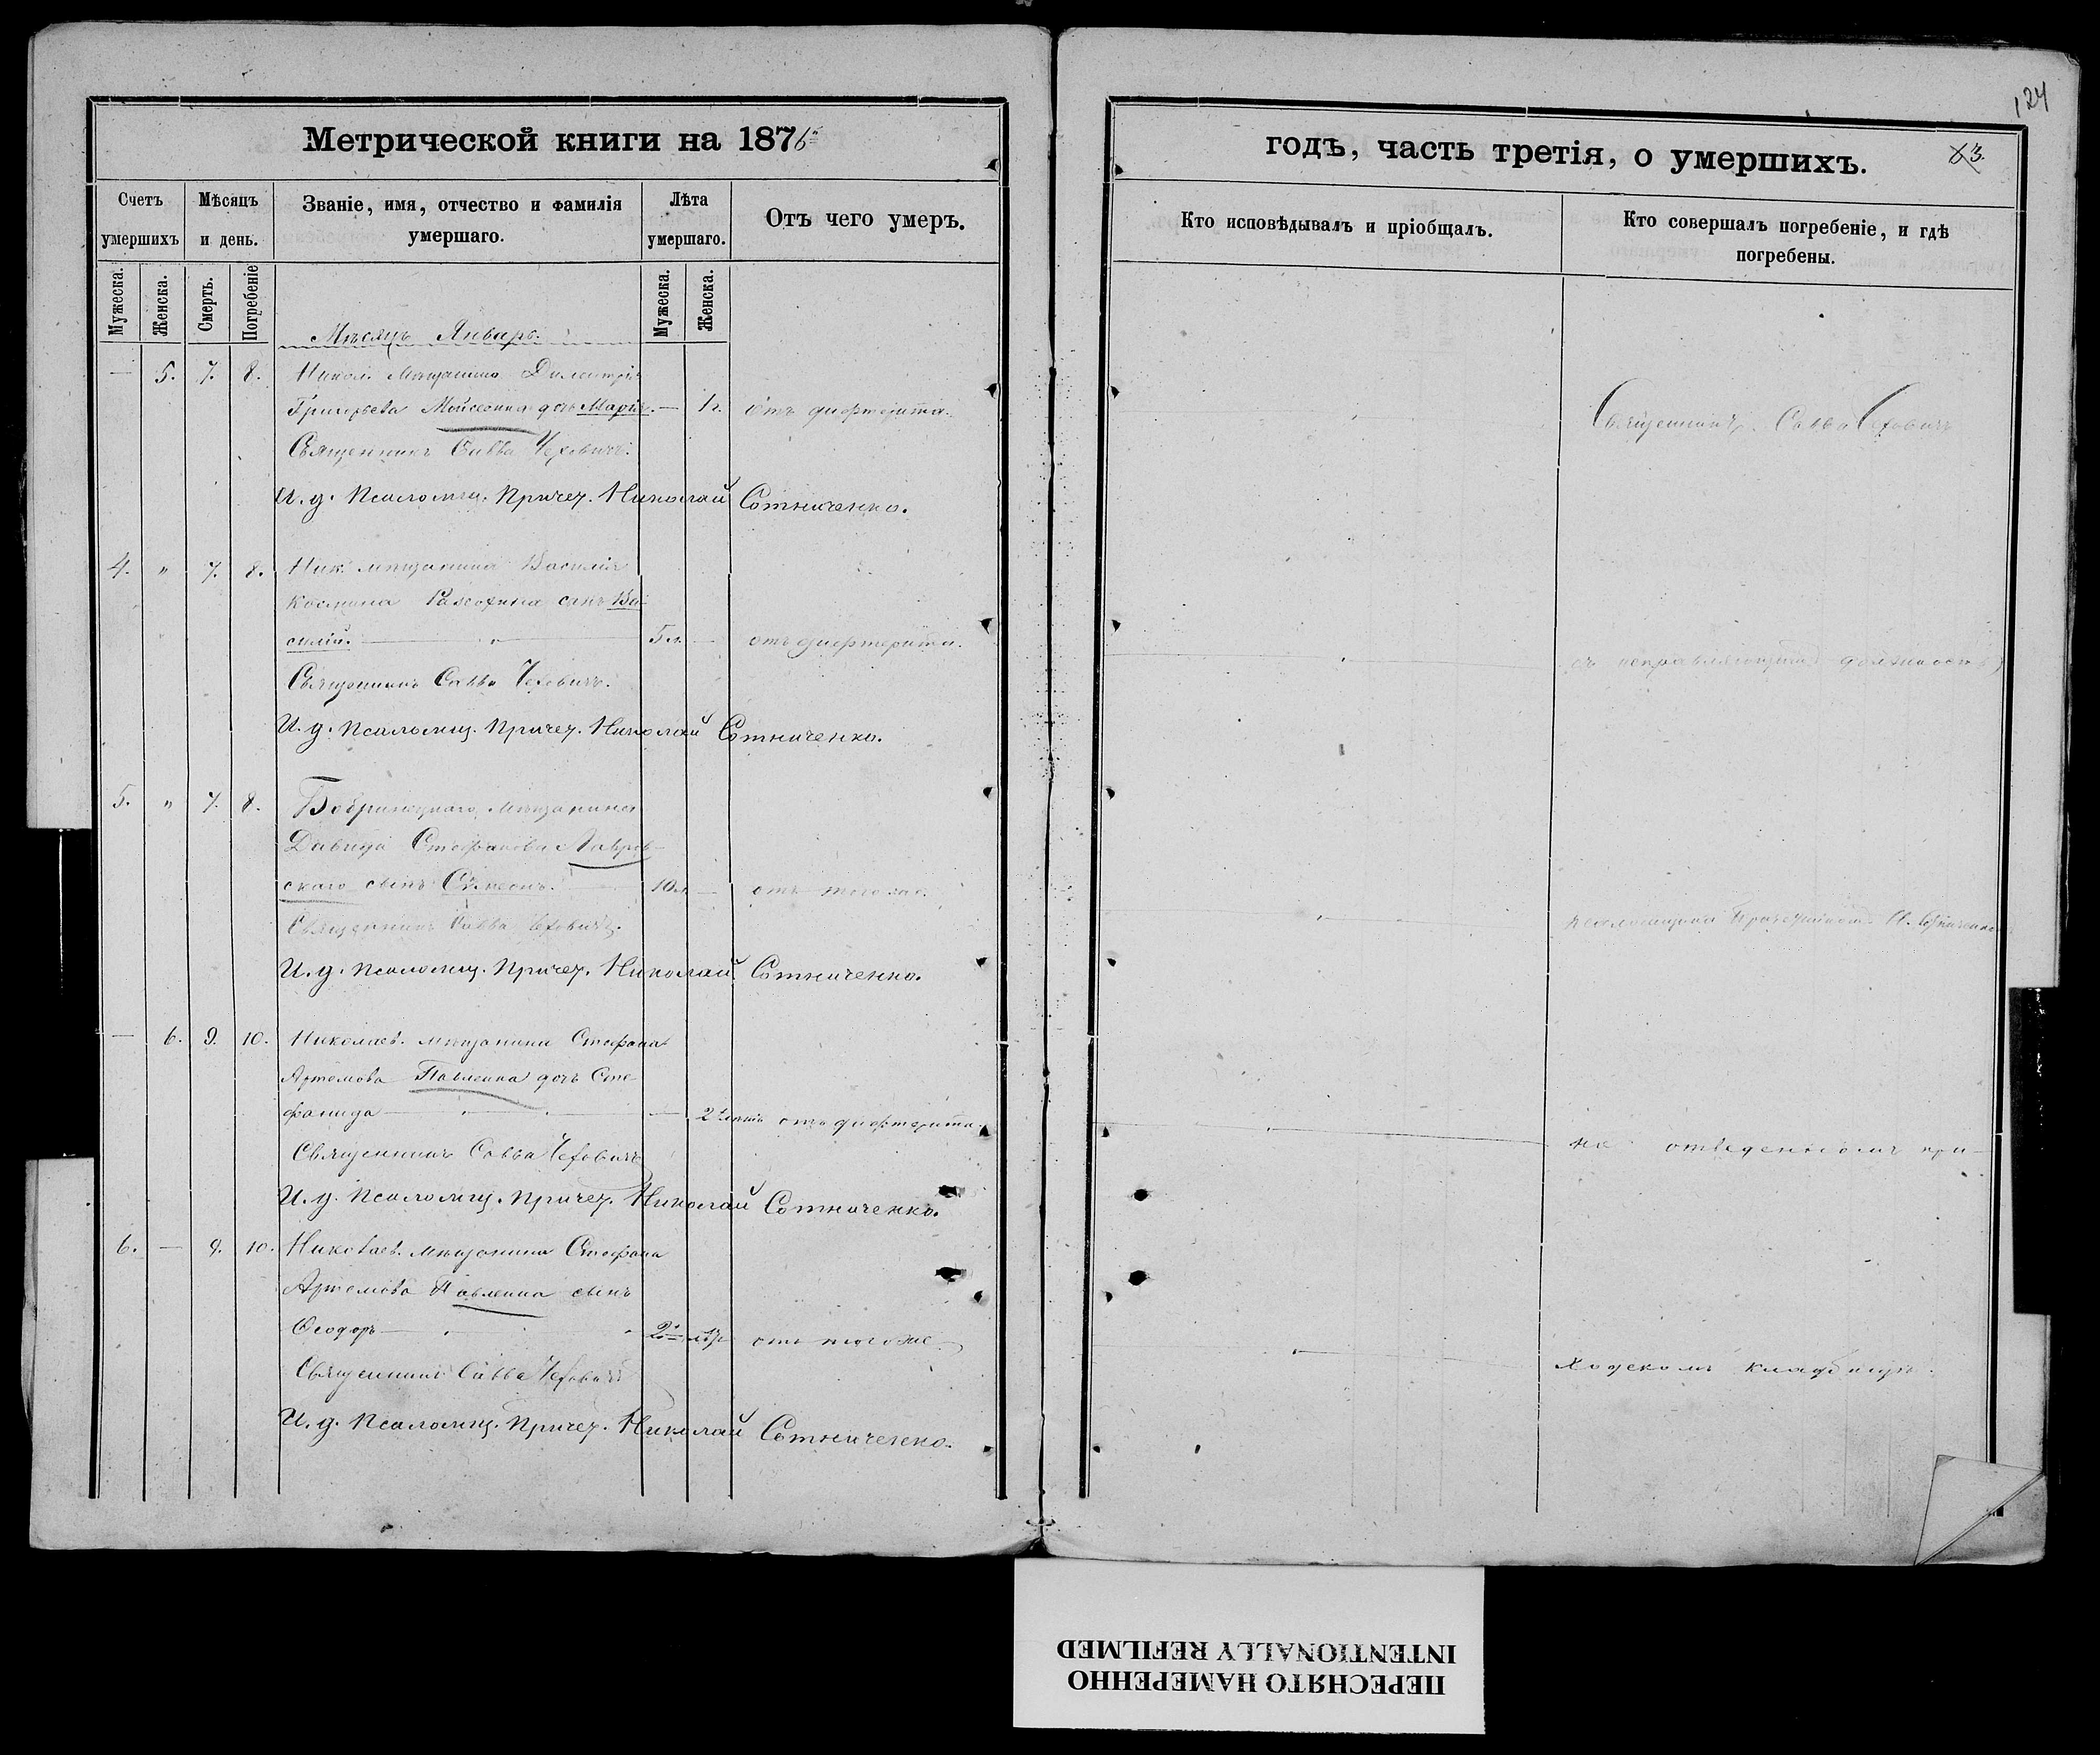 124
Метрической книги на 1876
годъ, часть третія, о умершихъ.
63.
Счетъ умершихъ
Мѣсяцъ и день.
Званіе, имя, отчество и фамилія умершаго.
Лѣта умершаго.
Отъ чего умеръ.
Кто исповѣдывалъ и пріобщалъ.
Кто совершалъ погребеніе, и гдѣ погребены.
Мужеска.
Женска.
Смерть.
Погребеніе
Мужеска.
Женска.
Мѣсяцъ Январь.
— 5. 7. 8. Никол. Мѣщанина Димитрія
Григорьева дочь Марія. — 1 г. отъ дифтерита.
Священникъ Савва Чеховичъ.
И. д. Псаломщ. Причет. Николай Сотниченко.
4. " 7. 8. Ник. мѣщанина Василія
Космина сынъ Ва-
силій. — 5 л. — отъ дифтерита.
Священникъ Савва Чеховичъ.
И. д. Псаломщ. Причет. Николай Сотниченко.
5. " 7. 8. Бобринецкаго мѣщанина
Давида Стефанова Лавров-
скаго сынъ Сѵмеонъ. — 10 л. — отъ того же.
Священникъ Савва Чеховичъ.
И. д. Псаломщ. Причет. Николай Сотниченко.
— 6. 9. 10. Николаев. мѣщанина Стефана
Артемова Павленка дочь Сте-
фанида — — 2 лѣтъ отъ дифтерита.
Священникъ Савва Чеховичъ
И. д. Псаломщ. Причет. Николай Сотниченко.
6. — 9. 10. Николаев. мѣщанина Стефана
Артемова Павленка сынъ
Ѳеодоръ — 2 лѣт отъ того же.
Священникъ Савва Чеховичъ
И. д. Псаломщ. Причет. Николай Сотниченко.
Священникъ Савва Чеховичъ
съ исправляющимъ должность
псаломщика Причетником Н. Сотниченко
на отведенномъ при-
ходскомъ кладбищѣ.
ПЕРЕСНЯТО НАМЕРЕННО
INTENTIONALLY REFILMED